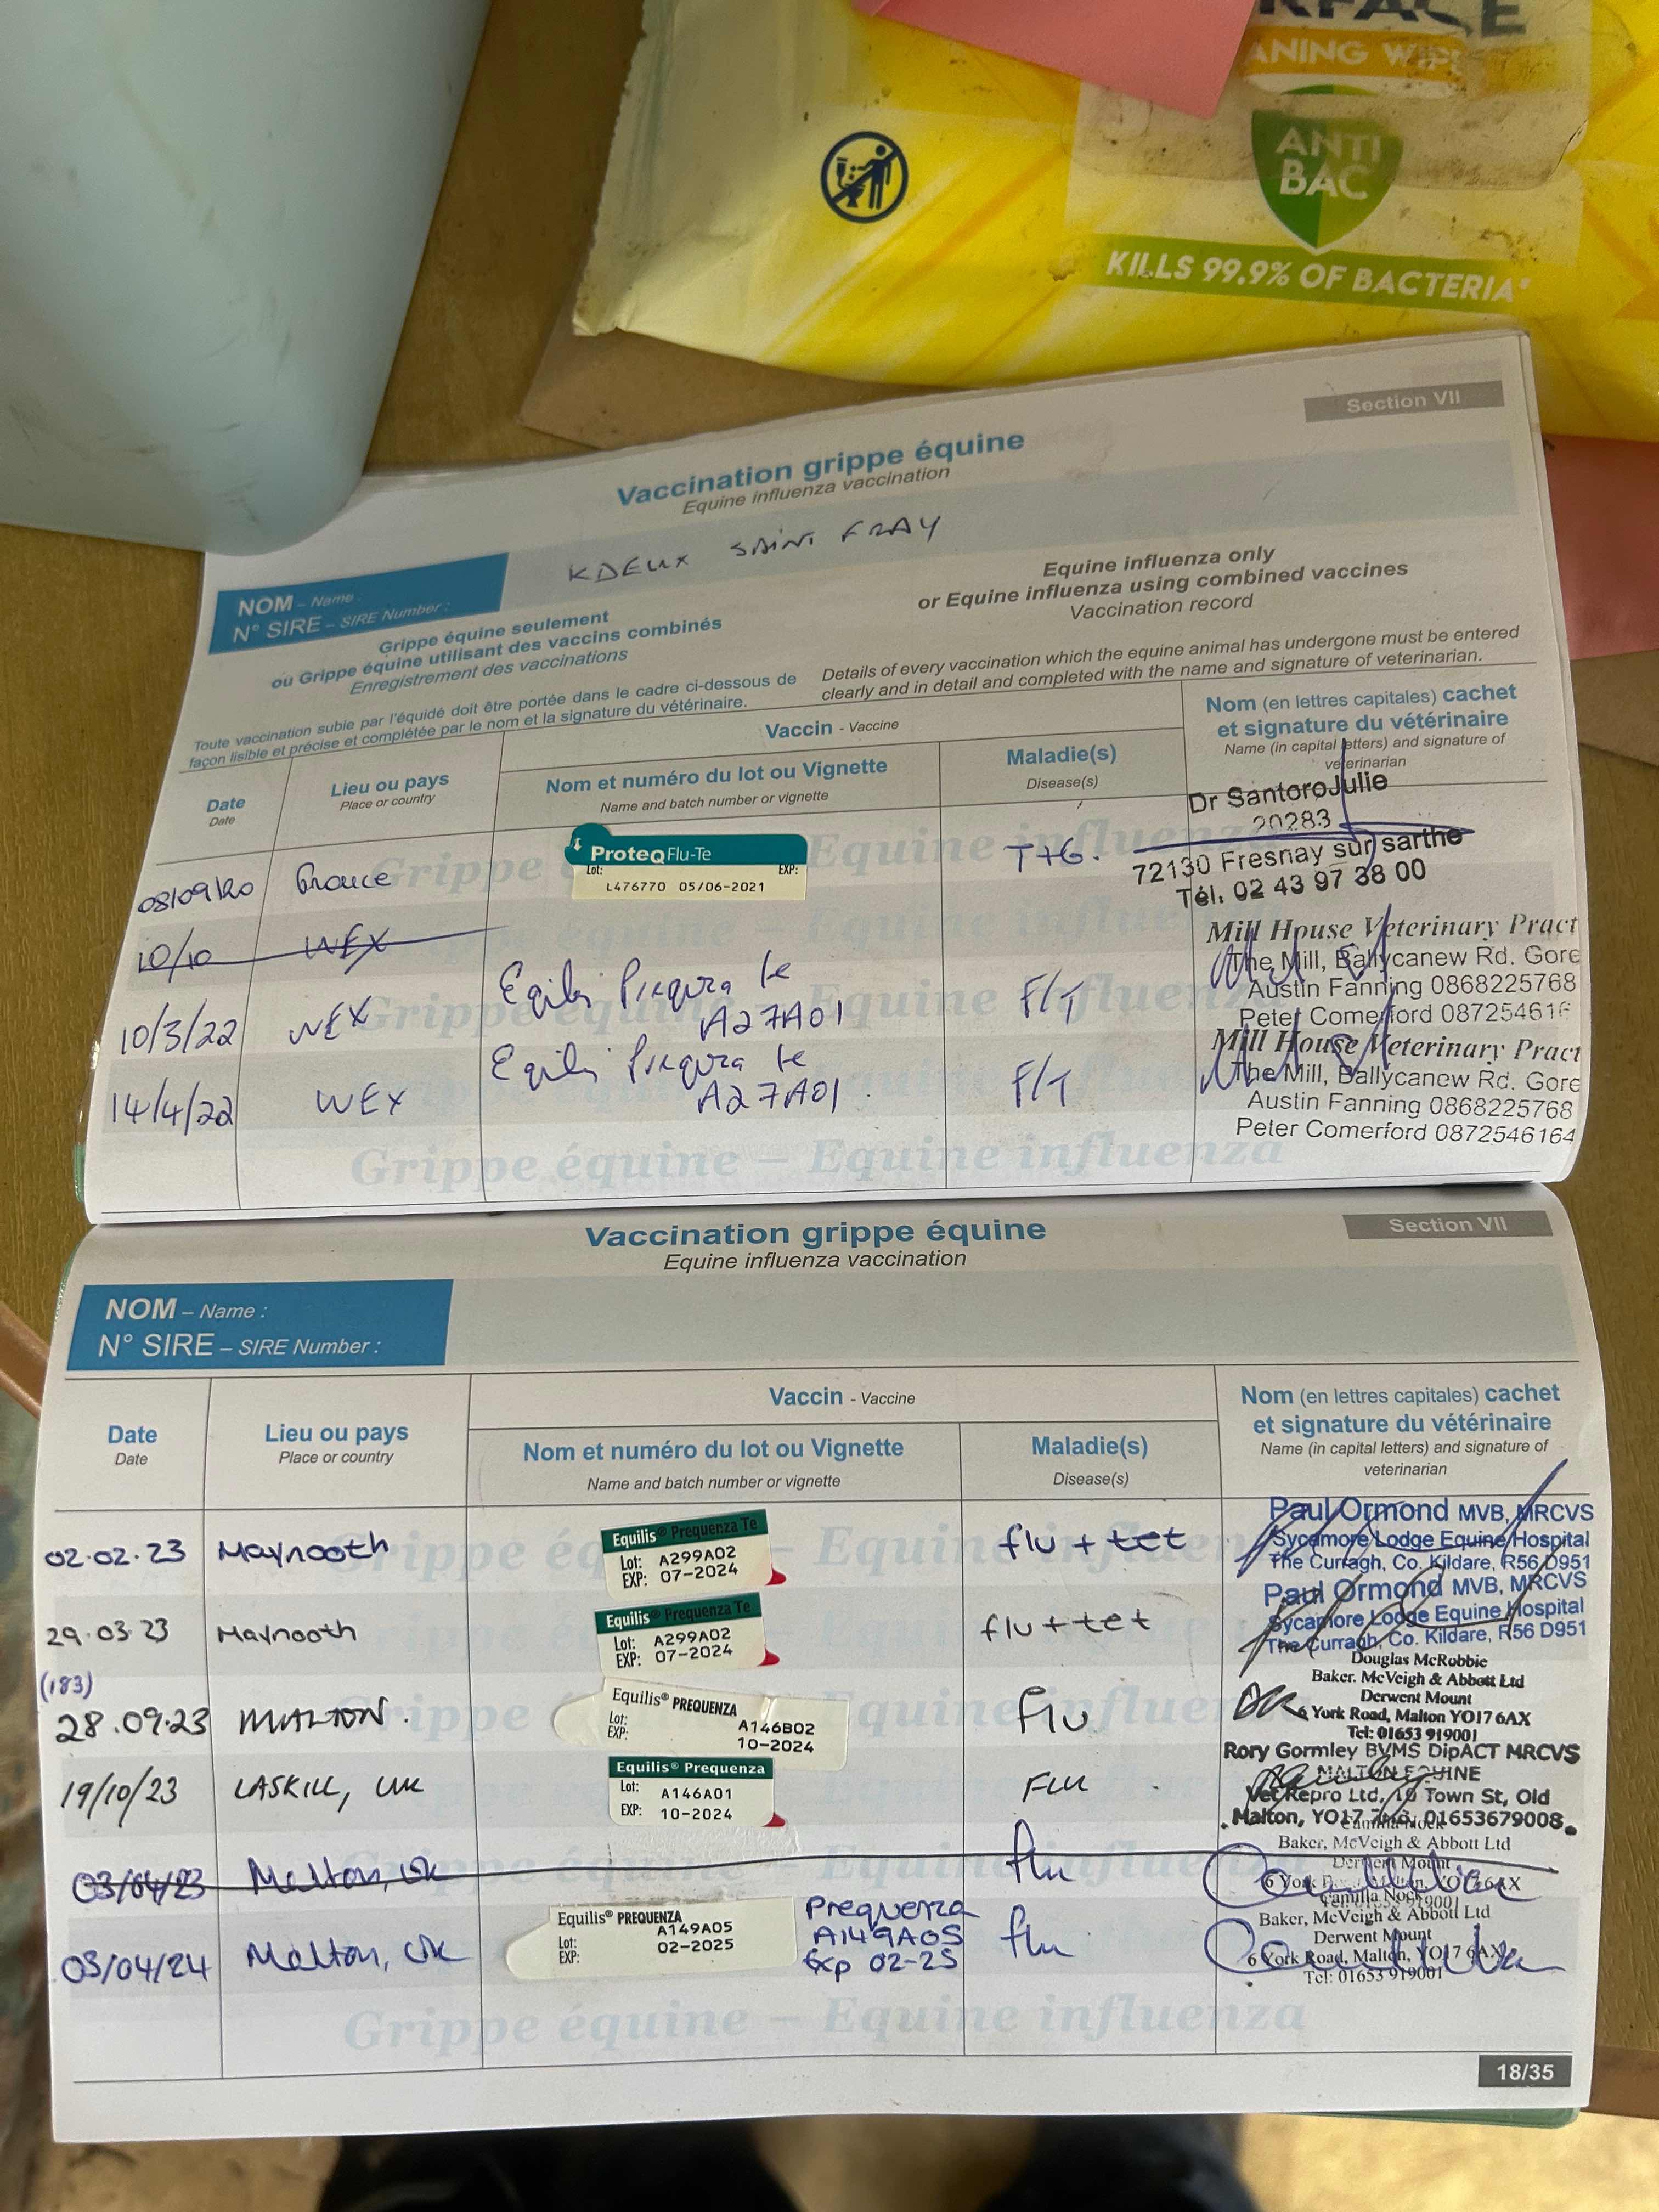 RFACE
ANING WIP
ANTI
BAC
KILLS 99.9% OF BACTERIA
Section VII
Vaccination grippe équine
Equine influenza vaccination
NOM – Name :
KDEUX SAINT FRAY
N° SIRE – SIRE Number :
Grippe équine seulement
ou Grippe équine utilisant des vaccins combinés
Enregistrement des vaccinations
Equine influenza only
or Equine influenza using combined vaccines
Vaccination record
Toute vaccination subie par l'équidé doit être portée dans le cadre ci-dessous de
façon lisible et précise et complétée par le nom et la signature du vétérinaire.
Details of every vaccination which the equine animal has undergone must be entered
clearly and in detail and completed with the name and signature of veterinarian.
Date
Date
Lieu ou pays
Place or country
Vaccin - Vaccine
Nom et numéro du lot ou Vignette
Name and batch number or vignette
Maladie(s)
Disease(s)
Nom (en lettres capitales) cachet
et signature du vétérinaire
Name (in capital letters) and signature of
veterinarian
08/09/20
ProteqFlu-Te
Lot: EXP:
L476770 05/06-2021
T+G.
Dr SantoroJulie
20283
72130 Fresnay sur sarthe
Tél. 02 43 97 38 00
10/10 WEX
10/3/22 WEX
A27A01
F/T
Mill House Veterinary Pract
The Mill, Ballycanew Rd. Gore
Austin Fanning 0868225768
Peter Comerford 087254616
14/4/22 WEX
A27A01
F/T
Mill House Veterinary Pract
The Mill, Ballycanew Rd. Gore
Austin Fanning 0868225768
Peter Comerford 0872546164
Grippe équine – Equine influenza
Vaccination grippe équine
Equine influenza vaccination
Section VII
NOM – Name :
N° SIRE – SIRE Number :
Date
Date
Lieu ou pays
Place or country
Vaccin - Vaccine
Nom et numéro du lot ou Vignette
Name and batch number or vignette
Maladie(s)
Disease(s)
Nom (en lettres capitales) cachet
et signature du vétérinaire
Name (in capital letters) and signature of
veterinarian
02.02.23 Maynooth
Equilis® Prequenza Te
Lot: A299A02
EXP: 07-2024
flu + tet
Paul Ormond MVB, MRCVS
Sycamore Lodge Equine Hospital
The Curragh, Co. Kildare, R56 D951
29.03.23 Maynooth
Equilis® Prequenza Te
Lot: A299A02
EXP: 07-2024
flu + tet
Paul Ormond MVB, MRCVS
Sycamore Lodge Equine Hospital
The Curragh, Co. Kildare, R56 D951
(183)
28.09.23 MALTON.
Equilis® PREQUENZA
Lot: A146B02
EXP: 10-2024
flu
Douglas McRobbie
Baker. McVeigh & Abbott Ltd
Derwent Mount
6 York Road, Malton YO17 6AX
Tel: 01653 919001
19/10/23 LASKILL, UK
Equilis® Prequenza
Lot: A146A01
EXP: 10-2024
FLU
Rory Gormley BVMS DipACT MRCVS
MALTON EQUINE
Vet Repro Ltd, 10 Town St, Old
Malton, YO17 01653679008
03/04/23 Malton, UK
flu
Baker, McVeigh & Abbott Ltd
Derwent Mount
6 York Road, Malton, YO17 6AX
03/04/24 Malton, UK
Equilis® PREQUENZA
Lot: A149A05
EXP: 02-2025
Prequenza
A149A05
Exp 02-25
flu
Camilla Nock
Baker, McVeigh & Abbott Ltd
Derwent Mount
6 York Road, Malton, YO17 6AX
Tel: 01653 919001
Grippe équine – Equine influenza
18/35